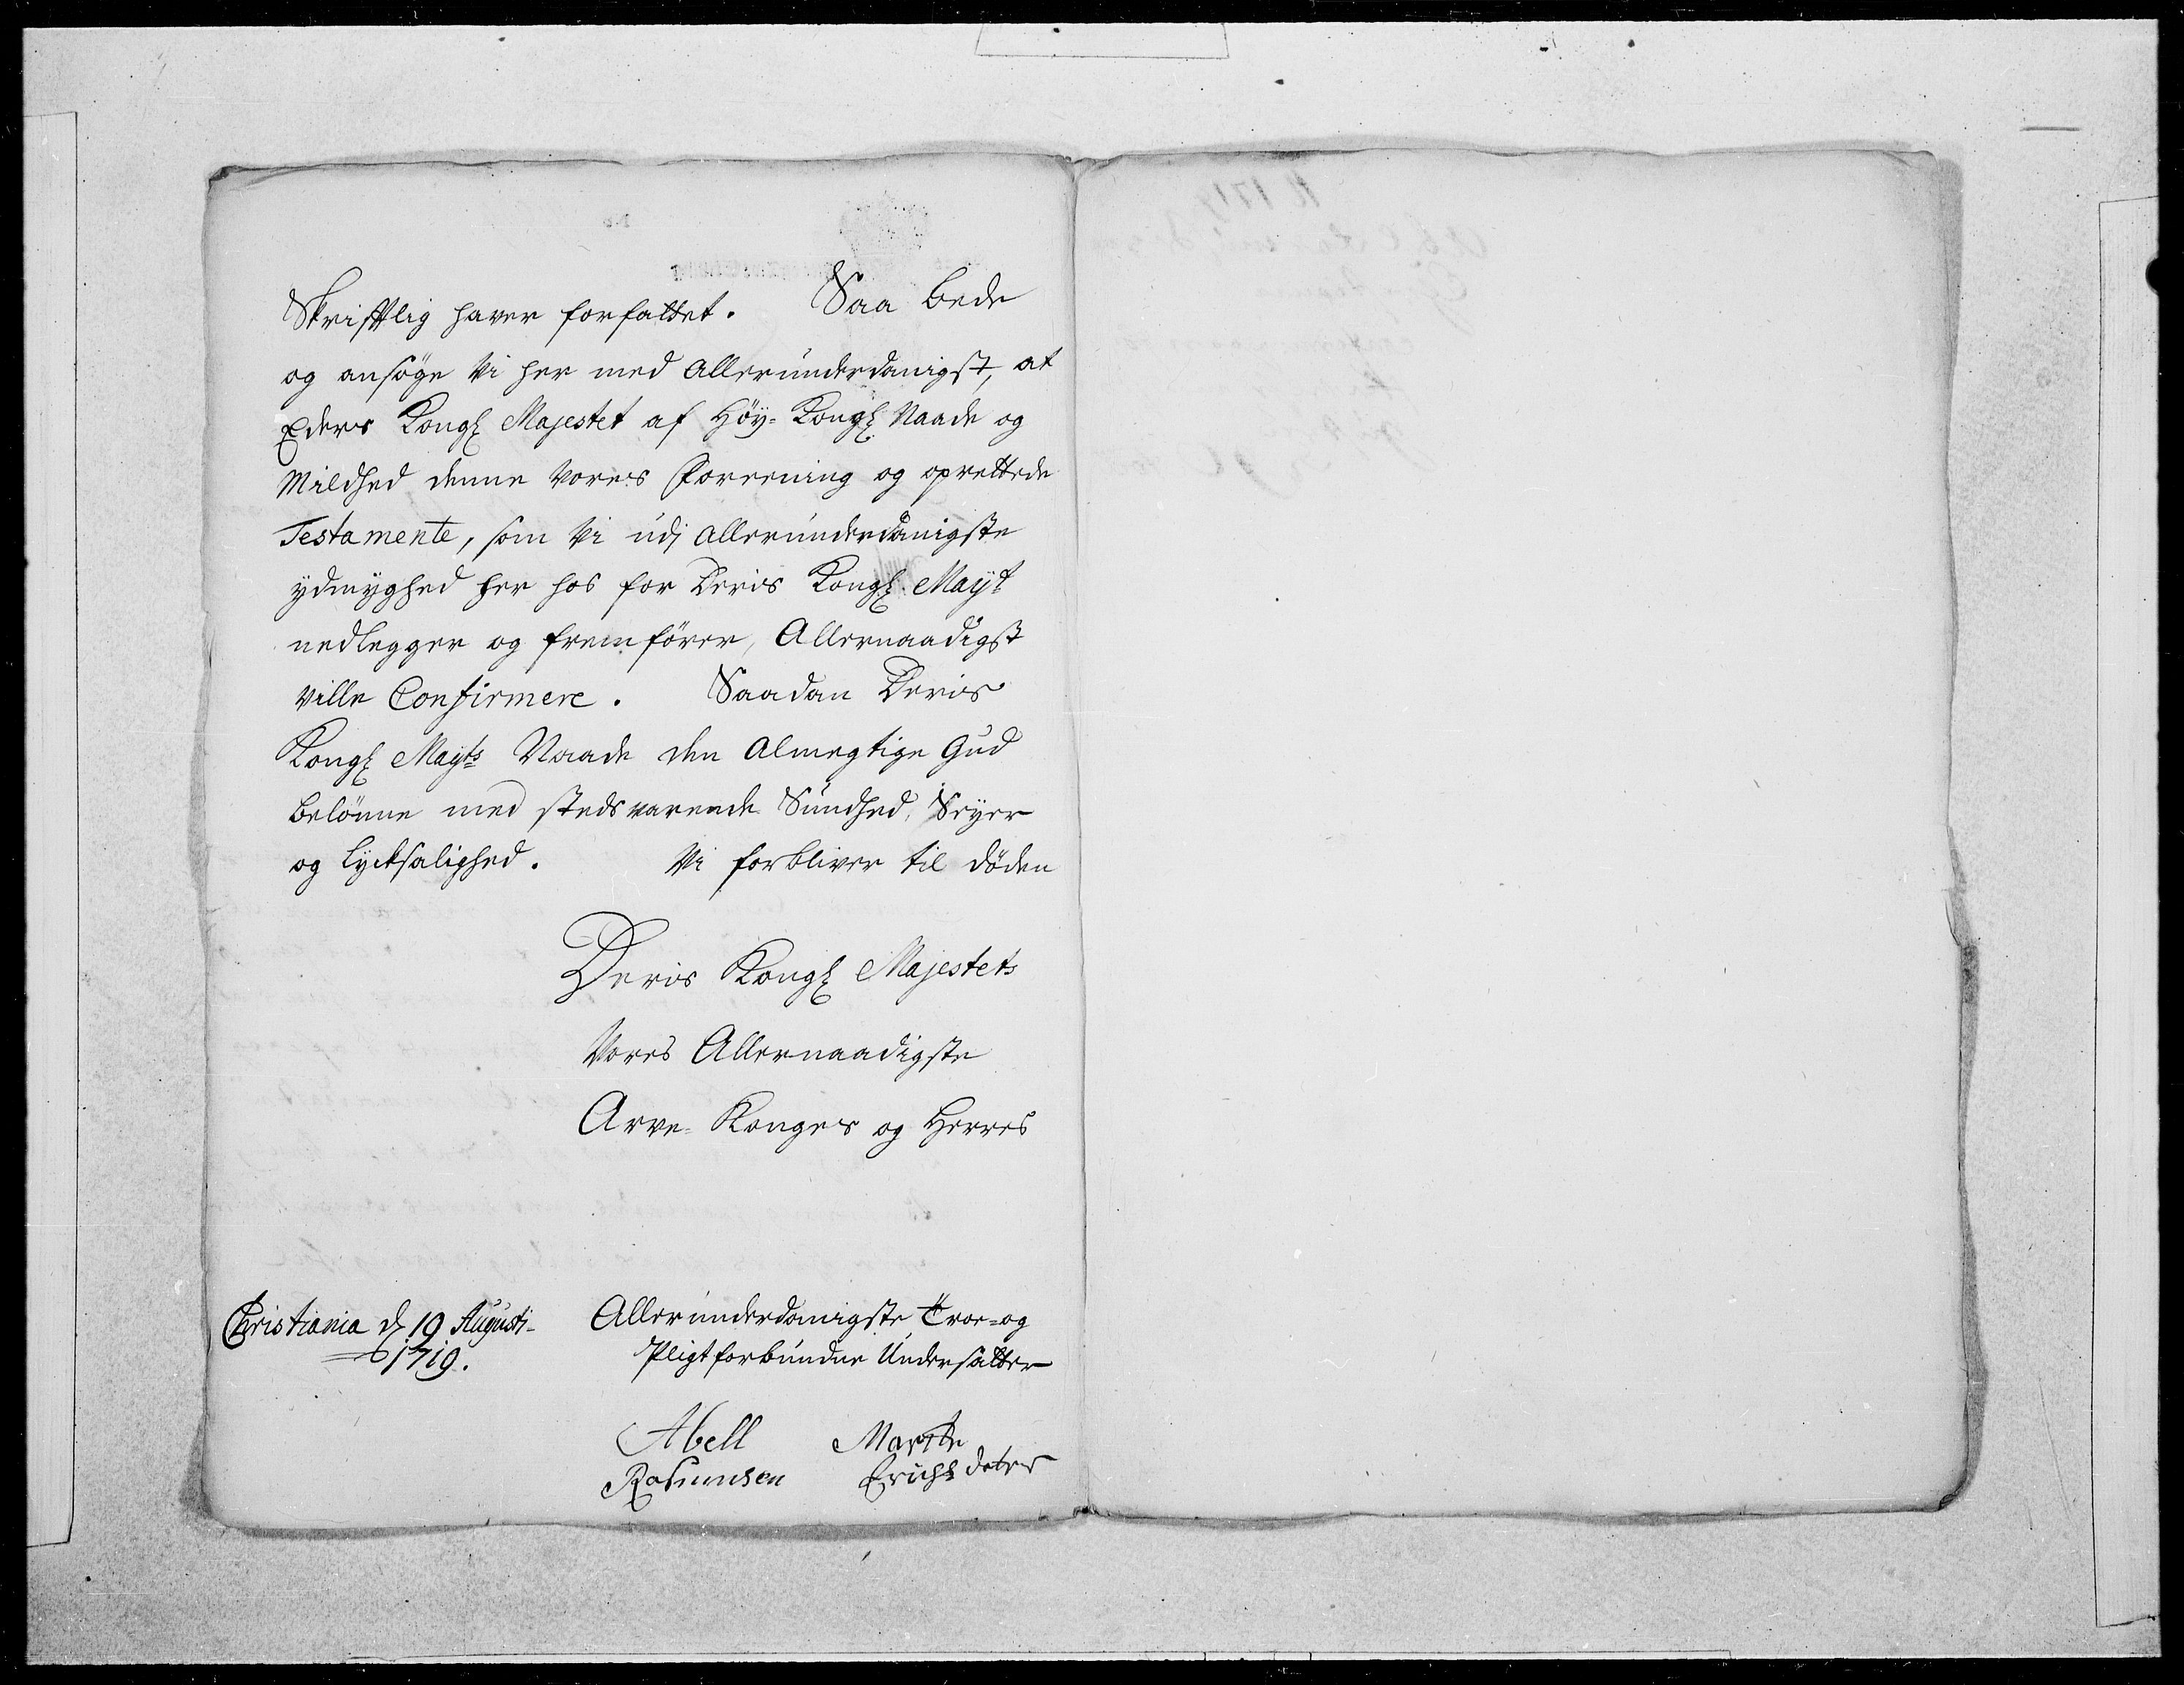 Skrifftlig haver forfattet. Saa bede
og ansøge Vi her med allerunderdanigst, at
Eders Kongl Majestet af Høy-Kongl Naade og
Mildhed denne vores Foreening og oprettede
Testamente, som Vi udj allerunderdanigste
ydmyghed her hos for Deris Kongl. Mayt
nedlegger og fremfører, Allernaadigst
ville Confirmere. Saadan Deris
Kongl Mayts Naade den Almegtige Gud
belønne med stedsvarende Sundhed, Seyer
og Lycksalighed. Vi forbliver til døden
Deris Kongl Majestets
Vores Allernaadigste
Arve-Konges og Herres
Christiania d 19 Augusti
1719.
Allerunderdanigste Troe-og
Pligtforbundne Undersatter
Abell Marite
Rasmusen Erichsdater